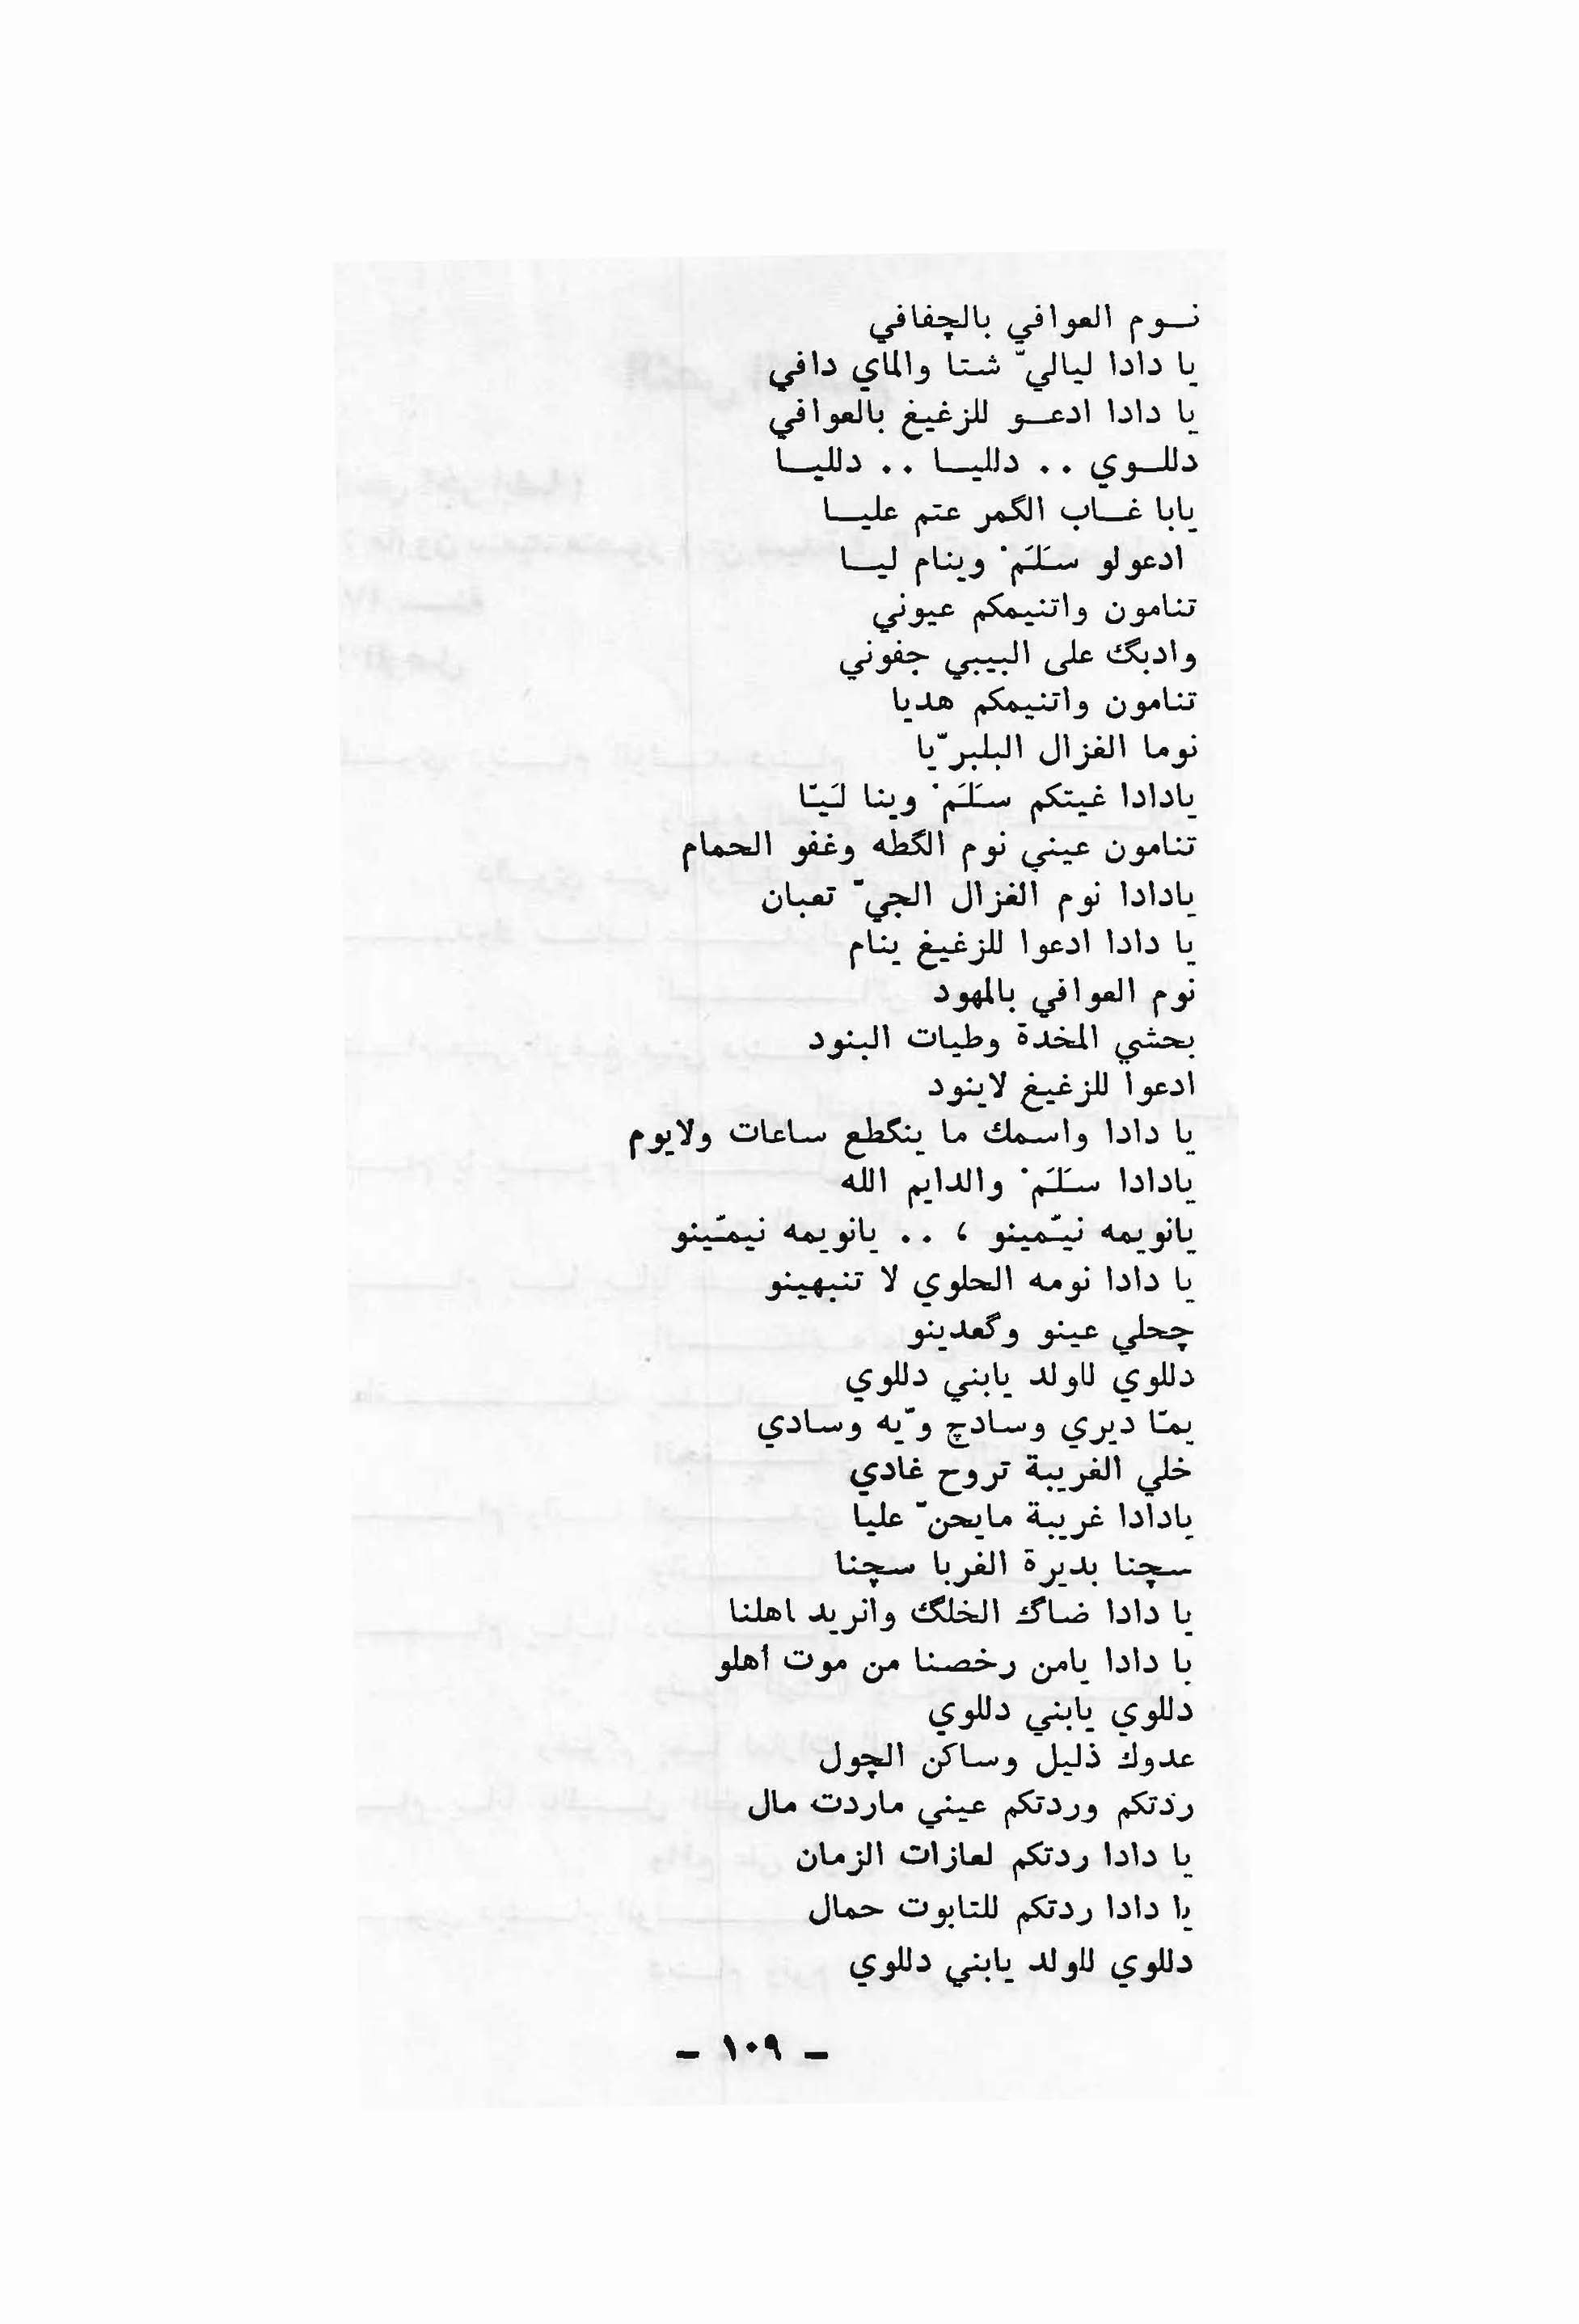 نـــوم العوافي بالچفافي
يا دادا لياليّ شتا والماي دافي
يا دادا ادعـــو للزغيغ بالعوافي
دللــوي .. دلليــا .. دلليــا
يابا غــاب الگمر عتم عليــا
ادعولو سَلَمْ وينام ليــا
تنامون واتنيمكم عيوني
وادبگ على البيبي جفوني
تنامون واتنيمكم هديا
نوما الغزال البلبرّيا
يادادا غيتكم سَلَمْ وينا لَيّا
تنامون عيني نوم الگطه وغفو الحمام
يادادا نوم الغزال الجيّ تعبان
يا دادا ادعوا للزغيغ ينام
نوم العوافي بالمهود
بحشي المخدة وطيات البنود
ادعوا للزغيغ لاينود
يا دادا واسمك ما ينگطع ساعات ولايوم
يادادا سَلَمْ والدايم الله
يانويمه نيّمينو ، .. يانويمه نيمّينو
يا دادا نومه الحلوي لا تنبهينو
چحلي عينو وگعدينو
دللوي لاولد يابني دللوي
يمّا ديري وسادچ ويّه وسادي
خلي الغريبة تروح غادي
يادادا غريبة مايحنّ عليا
سچنا بديرة الغربا سچنا
يا دادا ضاگ الخلگ وانريد اهلنا
با دادا يامن رخصنا من موت أهلو
دللوي يابني دللوي
عدوك ذليل وساكن الچول
رذتكم وردتكم عيني ماردت مال
يا دادا ردتكم لعازات الزمان
يا دادا ردتكم للتابوت حمال
دللوي لاولد يابني دللوي
– ١٠٩ –